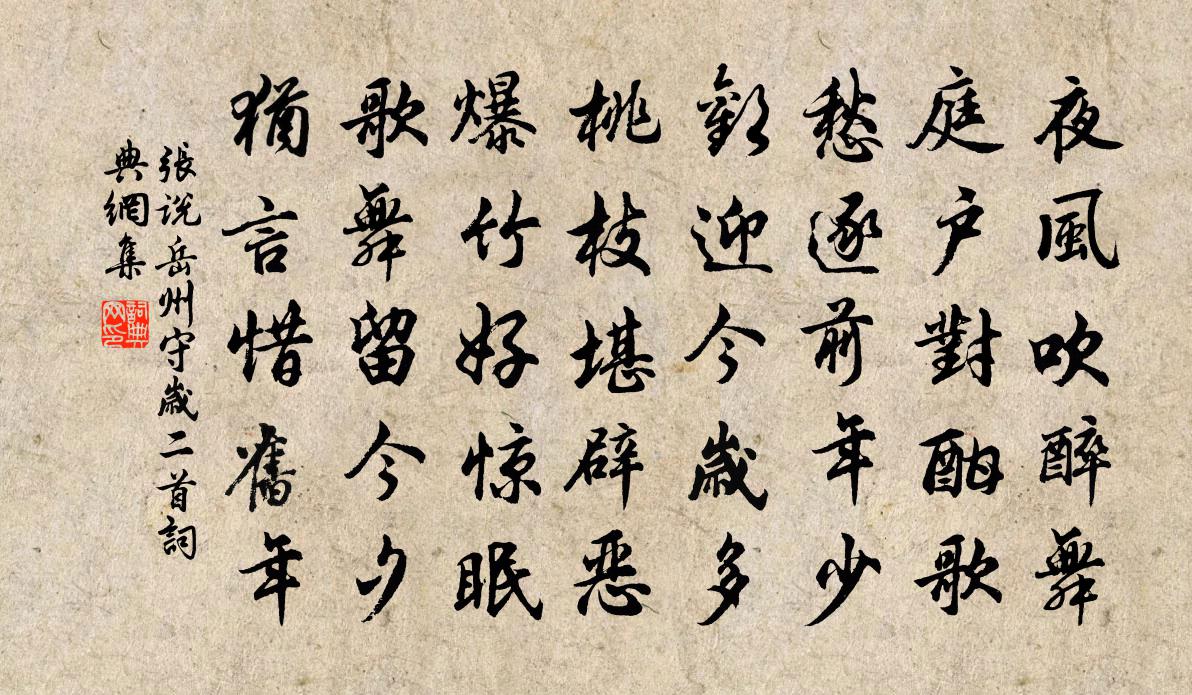 夜風吹醉舞
庭户對酣歌
愁逐前年少
歡迎今歲多
桃枝堪辟惡
爆竹好惊眠
歌舞留今夕
猶言惜舊年
張説岳州守歲二首詞
典網集
詞典
网印